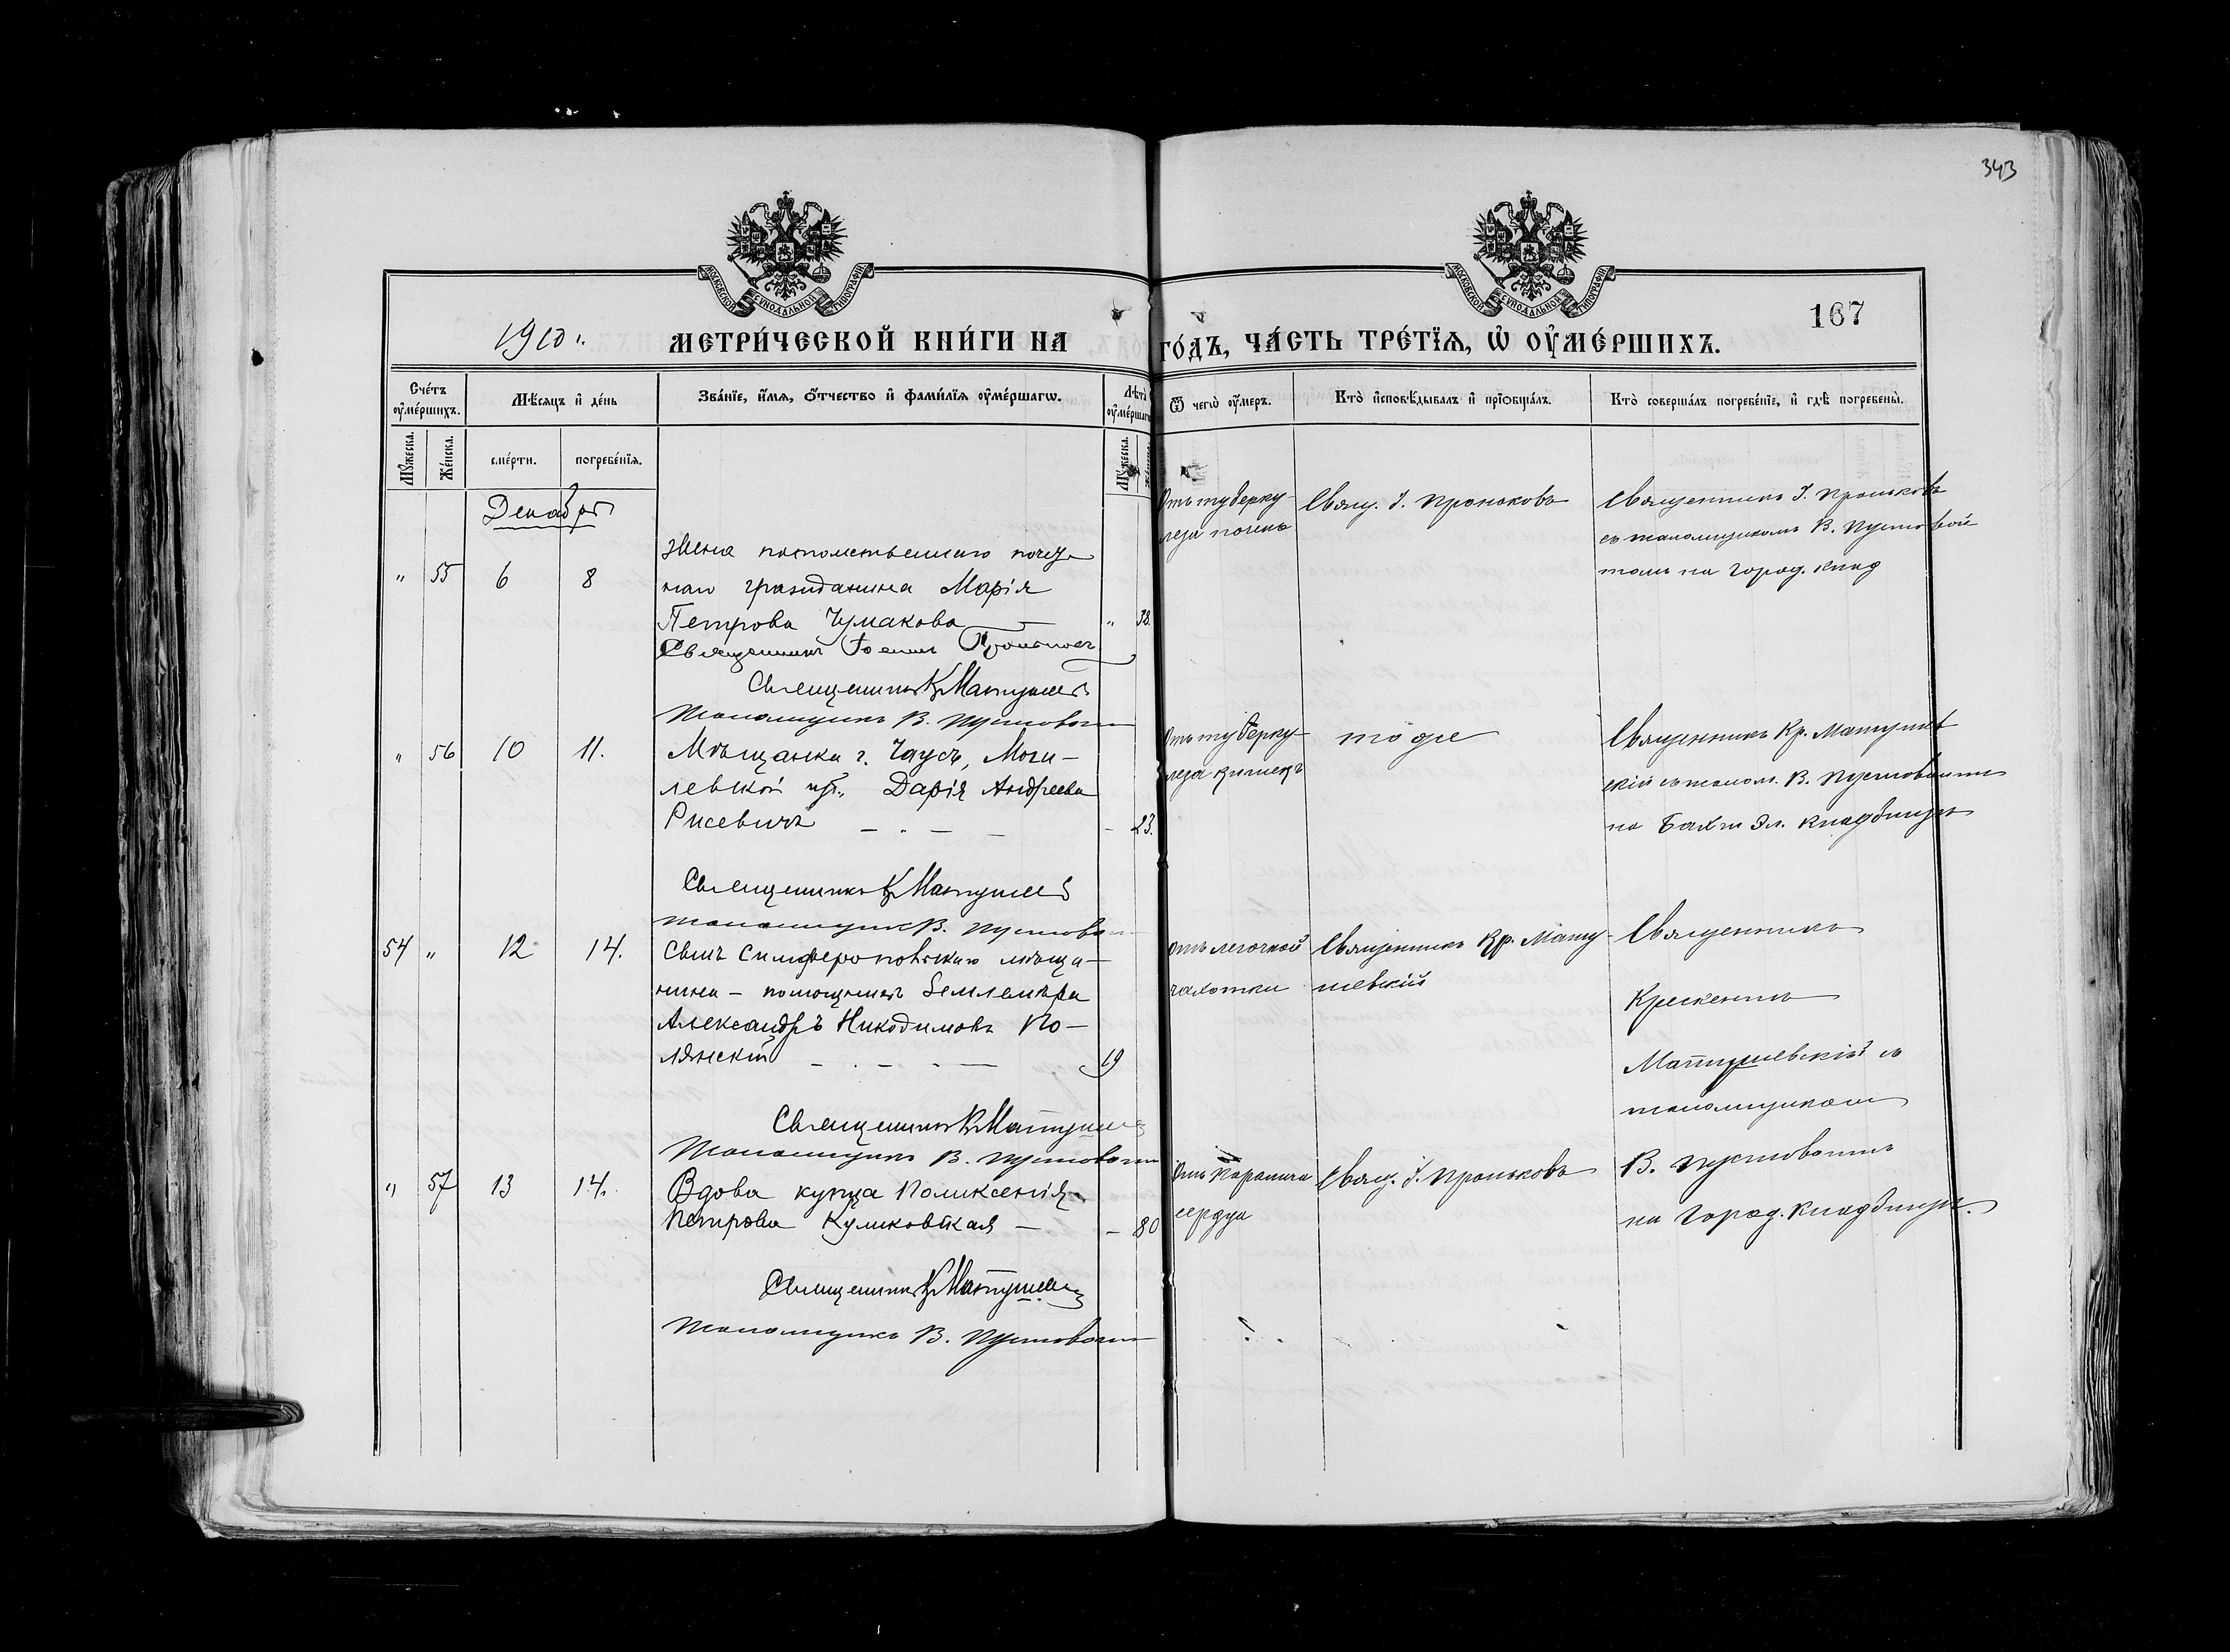 343
МОСКОВСКОЙ СѴНОДАЛЬНОЙ ТИПОГРАФІИ
МОСКОВСКОЙ СѴНОДАЛЬНОЙ ТИПОГРАФІИ
167
1910 г. МЕТРИ́ЧЕСКОЙ КНИ́ГИ НА ГО́ДЪ, ЧА́СТЬ ТРЕ́ТЇѦ, Ѡ҆ ОУ҆МЕ́РШИХЪ.
Сче́тъ оу҆ме́ршихъ.
Мѣ́сяцъ и҆ де́нь
Зва́нїе, и҆́мѧ, ѻ҆́тчество и҆ фами́лїѧ оу҆ме́ршагѡ.
Лѣ́та оу҆ме́ршагѡ
Ѿ чегѡ̀ оу҆́меръ.
Кто̀ и҆сповѣ́дывалъ и҆ прїѻбща́лъ.
Кто̀ соверша́лъ погребе́нїе, и҆ гдѣ̀ погребены̀.
Мꙋ́жеска.
Же́нска.
сме́рти.
погребе́нїѧ.
Мꙋ́жеска.
Декабрь
" 55 6 8
Жена потомственнаго почет-
наго гражданина Марія
Петрова Чумакова " 38.
Священникъ Іоаннъ Проньковъ
Священникъ К Матушев
Псаломщикъ В. Пустовой
Отъ туберку-
леза почекъ
Свящ. І. Проньковъ
Священникъ І. Проньковъ
съ псаломщикомъ В. Пустовой
томъ на город. клад
" 56 10 11.
Мѣщанка г. Чаусъ, Моги-
левской губ., Дарія Андреева
Рисевичъ - 23.
Священникъ К Матушев
псаломщикъ В. Пустово
Отъ туберку-
леза кишекъ
тоже
Священникъ Кр. Матушев
скій съ псалом. В. Пустовойтъ
на Бахч Эл. кладбищѣ
54 " 12 14.
Сынъ Симферопольскаго мѣща-
нина - помощникъ Землемѣра
Александръ Никодимовъ По-
лянскій 19
Священникъ К Матушев
Псаломщикъ В. Пустовойт
Отъ легочной
чахотки
Священникъ Кр. Мату-
шевскій
Священникъ
Крискентъ
Матушевскій съ
псаломщикомъ
В. Пустовойтъ
на город. кладбищѣ.
" 57 13 14.
Вдова купца Поликсенія
Петрова Куликовская - - 80
Священникъ К Матушев
Псаломщикъ В. Пустовойт
Отъ паралича
сердца
Свящ. І. Проньковъ